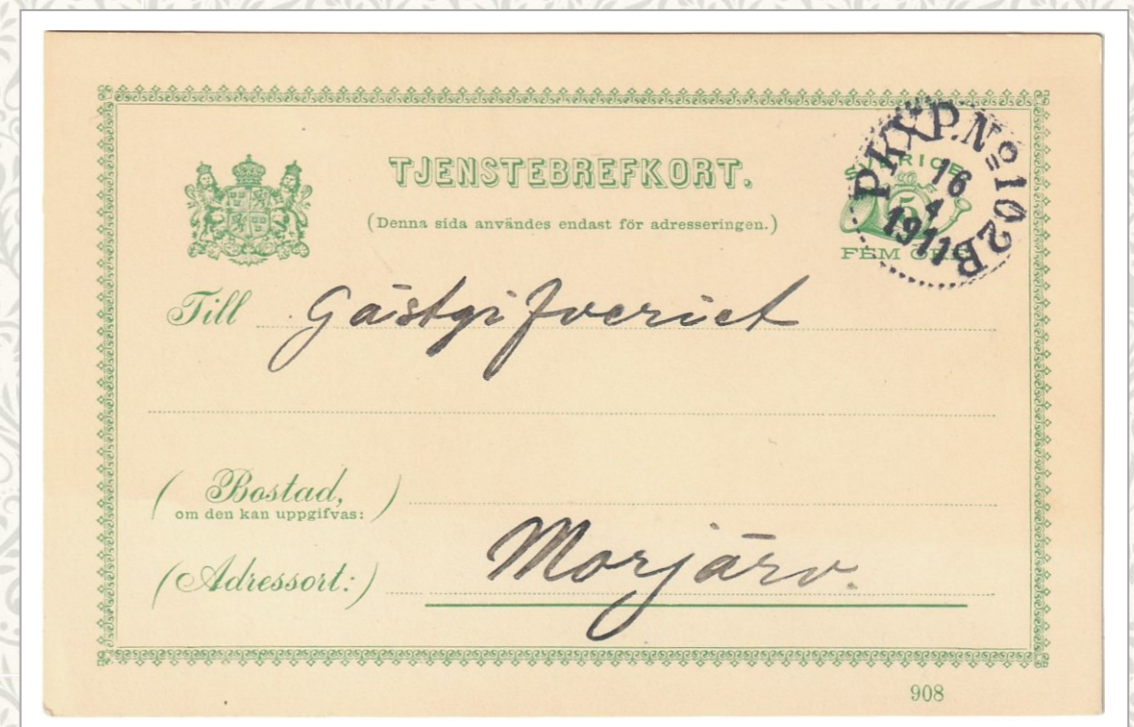 TJENSTEBREFKORT.
(Denna sida användes endast för adresseringen.)
SVERIGE
5
FEM ÖRE
PKXP.No 102B
16
4
1911
Till Gästgifveriet
(Bostad,)
om den kan uppgifvas:
(Adressort:) Morjärv.
908